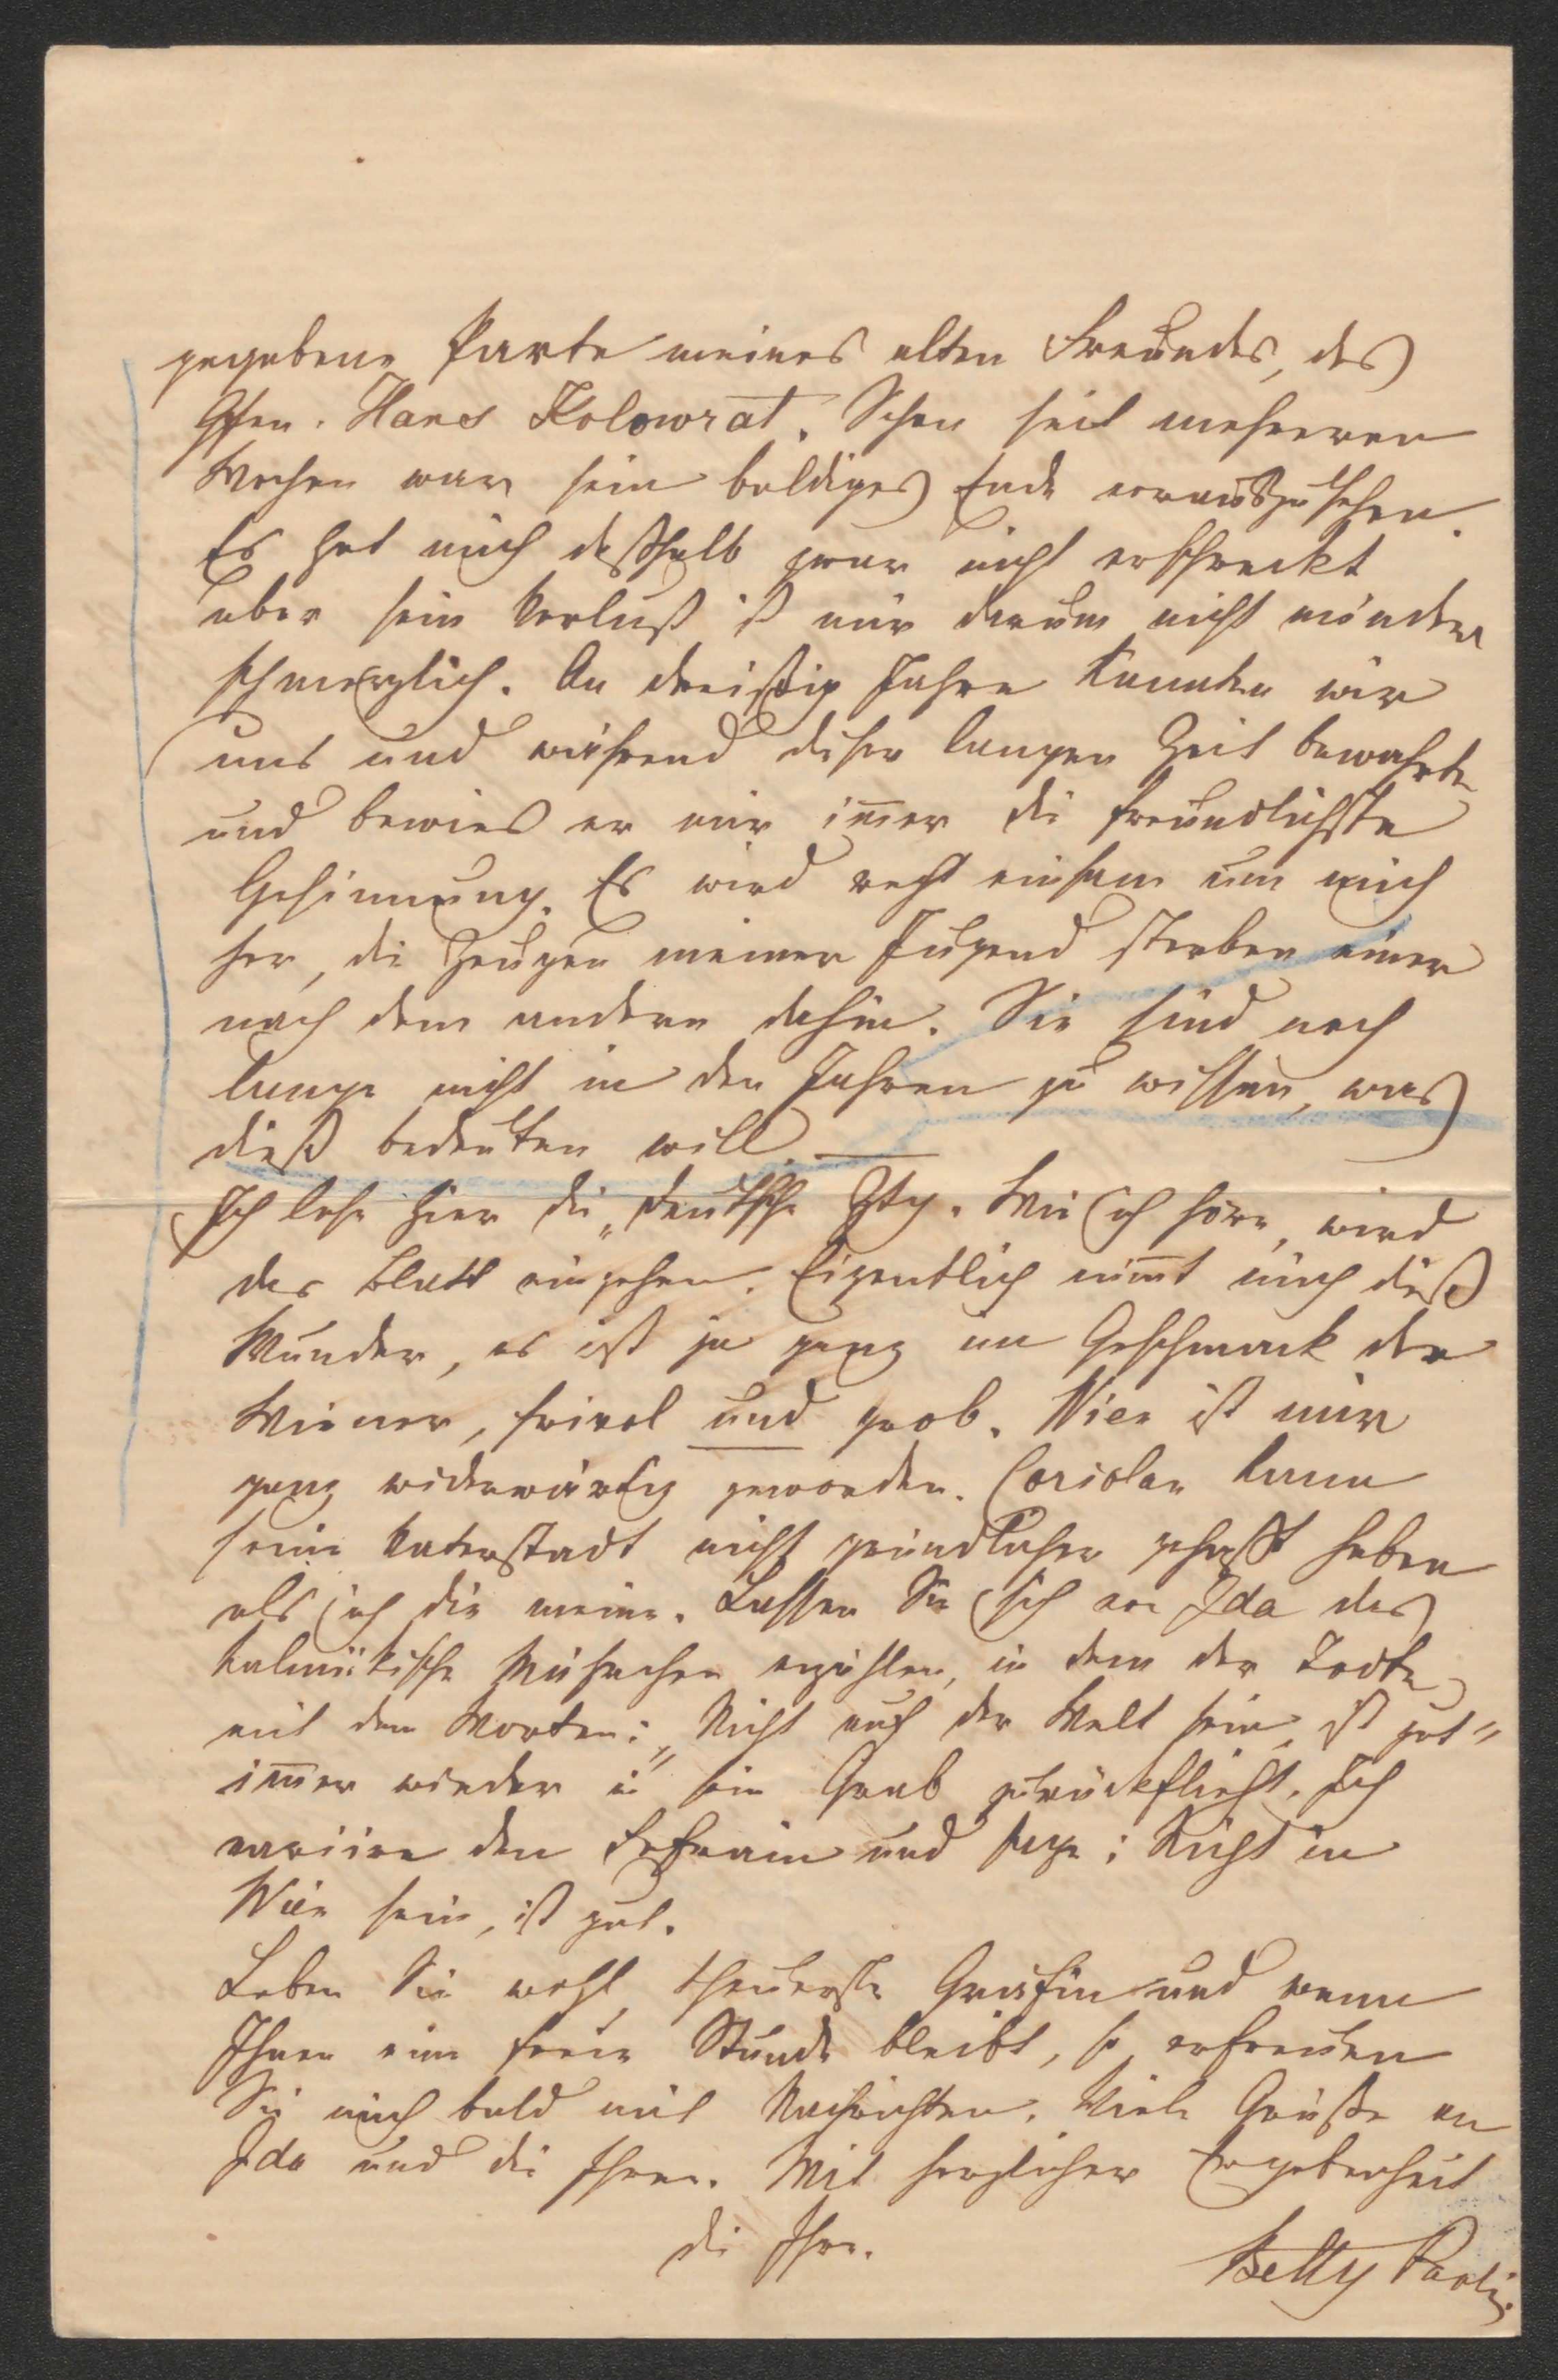 gegebene Parte meines alten Freundes, des
Gfen. Hans Kolowrat. Schon seit mehreren
Wochen war sein baldiges Ende vorauszusehen.
Es hat mich deßhalb zwar nicht erschreckt
aber sein Verlust ist mir darum nicht minder
schmerzlich. An dreißig Jahre kannten wir
uns und während dieser langen Zeit bewahrte
und bewies er mir im̄er die freundlichste
Gesinnung. Es wird recht einsam um mich
her, die Zeugen meiner Jugend sterben einer
nach dem andern dahin. Sie sind noch
lange nicht in den Jahren zu wissen, was
dieß bedeuten will. —
Ich lese hier die „Deutsche Ztg. Wie ich höre, wird
das Blatt eingehen. Eigentlich nim̄t mich dieß
Wunder, es ist ja ganz im Geschmack der
Wiener, frivol und grob. Wien ist mir
ganz widerwärtig geworden. Coriolan kann
seine Vaterstadt nicht gründlicher gehaßt haben
als ich die meine. Lassen Sie sich von Ida das
kalmükische Mährchen erzählen, in dem der Todte
mit den Worten: „Nicht auf der Welt sein, ist gut"
im̄er wieder in sein Grab zurückflieht. Ich
variire den Refrain und sage: Nicht in
Wien sein, ist gut.
Leben Sie wohl, theuerste Gräfin und wenn
Ihnen eine freie Stunde bleibt, so erfreuen
Sie mich bald mit Nachrichten. Viele Grüße an
Ida und die Ihren. Mit herzlicher Ergebenheit
die Ihre.
Betty Paoli.